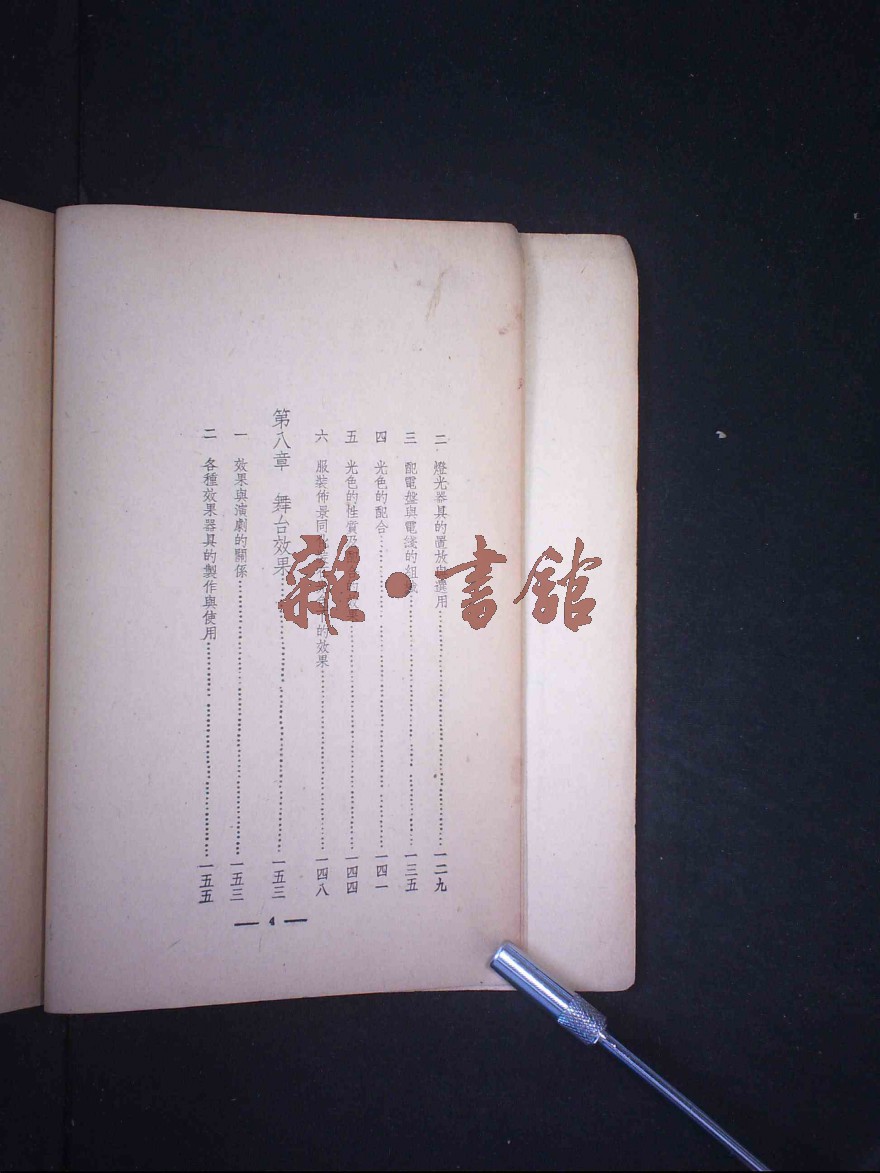 二 燈光器具的置放與選用 一二九
三 配電盤與電綫的組織 一三五
四 光色的配合 一四一
五 光色的性質及 一四四
六 服裝佈景同 的效果 一四八
第八章 舞台效果 一五三
一 效果與演劇的關係 一五三
二 各種效果器具的製作與使用 一五五
— 4 —
雜·書館